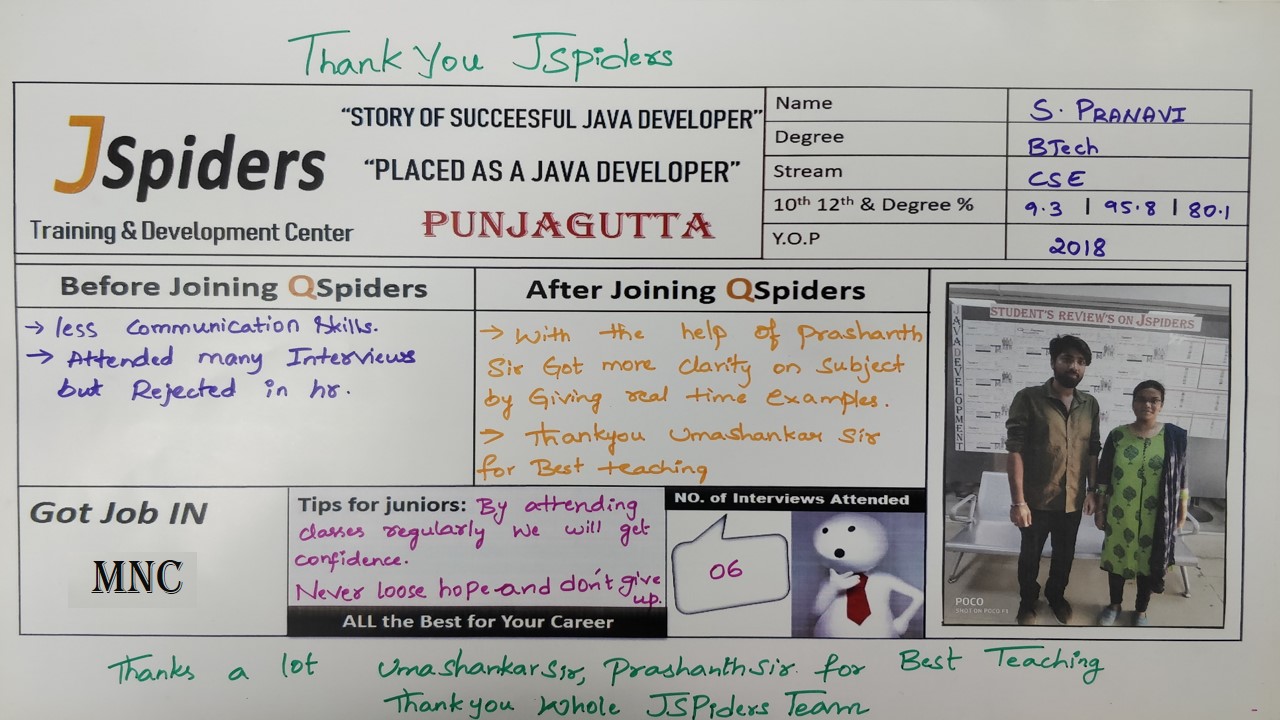 Thank You JSpiders
JSpiders
Training & Development Center
“STORY OF SUCCEESFUL JAVA DEVELOPER”
“PLACED AS A JAVA DEVELOPER”
PUNJAGUTTA
Name S. PRANAVI
Degree BTech
Stream CSE
10th 12th & Degree % 9.3 | 95.8 | 80.1
Y.O.P 2018
Before Joining QSpiders
→ less Communication Skills.
→ Attended many Interviews
but Rejected in hr.
After Joining QSpiders
→ With the help of Prashanth
Sir Got more clarity on Subject
by Giving real time Examples.
→ Thankyou Umashankar Sir
for Best teaching
STUDENT'S REVIEW'S ON JSPIDERS
JAVA DEVELOPMENT
POCO
SHOT ON POCO F1
Got Job IN
MNC
Tips for juniors: By attending
classes regularly we will get
confidence.
Never loose hope and don't give
up.
ALL the Best for Your Career
NO. of Interviews Attended
06
Thanks a lot Umashankar Sir, Prashanth Sir. for Best Teaching
Thankyou Whole JSPiders Team